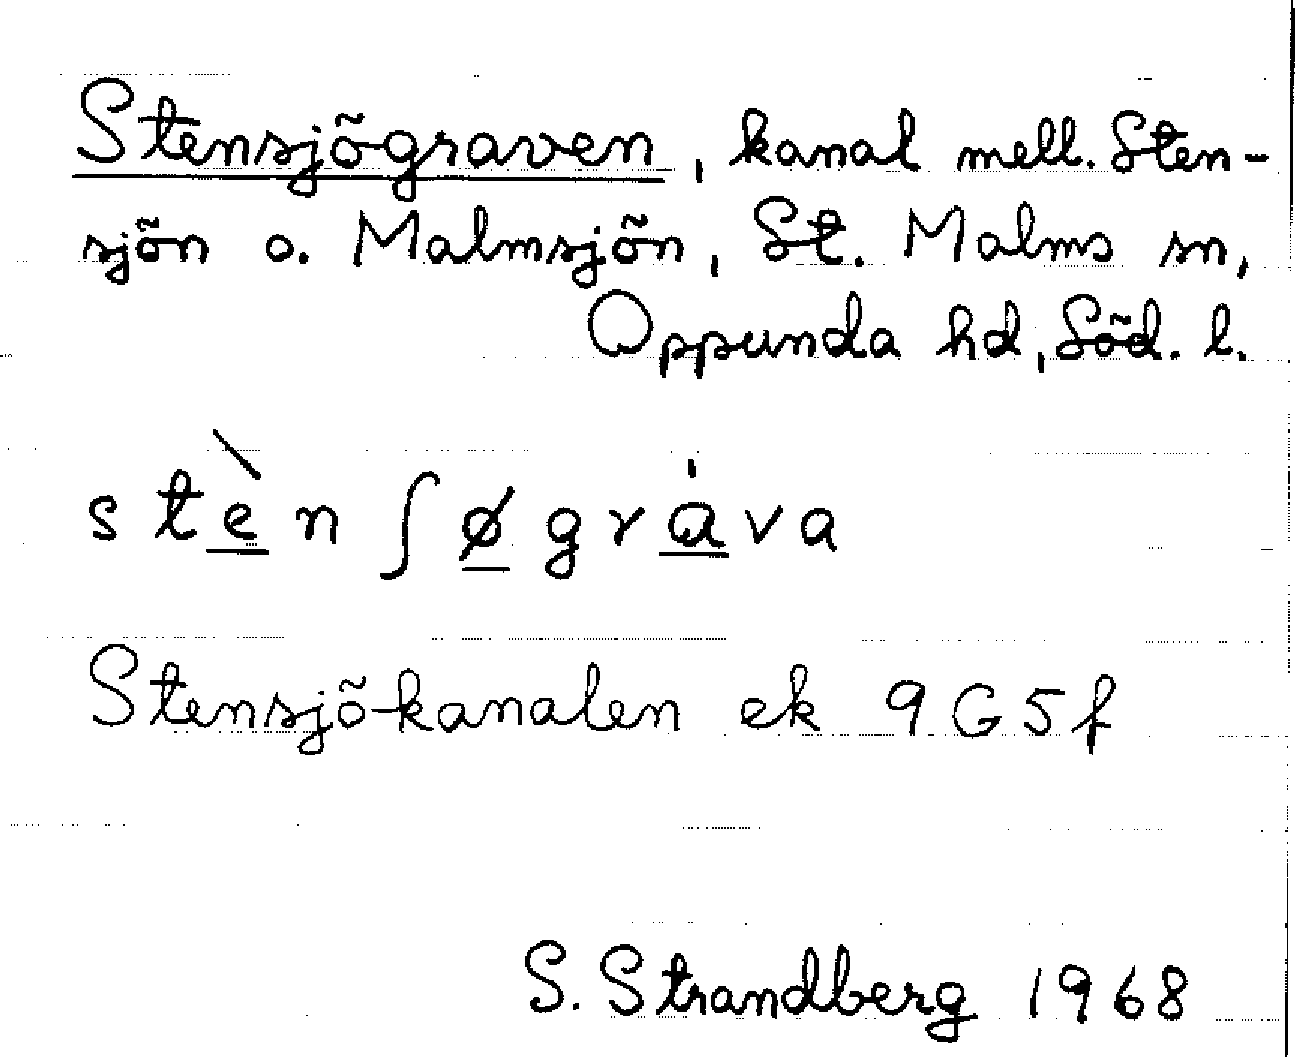 Stensjögraven, kanal mell. Sten-
sjön o. Malmsjön, St. Malms sn,
Oppunda hd, Söd. l.
stèn ʃøgrava
Stensjökanalen ek 9G5f
S. Strandberg 1968